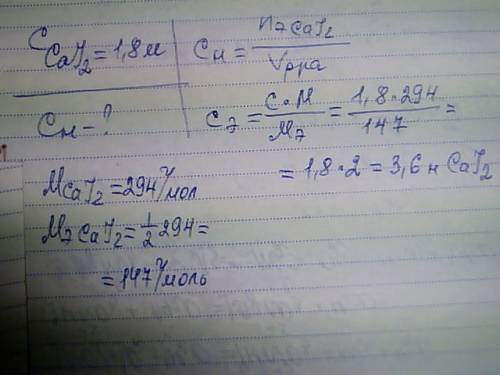 C CaJ₂ = 1,8 м
Cн - ?
Cн = nэ CaJ₂ / Vрра
Cэ = C·M / Mэ = 1,8·294 / 147 =
= 1,8·2 = 3,6 н CaJ₂
M CaJ₂ = 294 г/мол
Mэ CaJ₂ = 1/2 294 =
= 147 г/моль